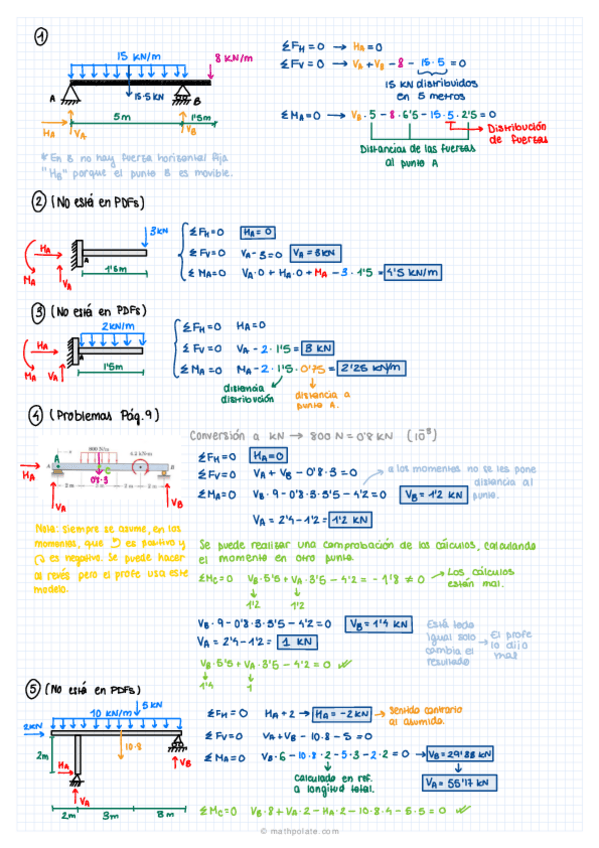 1
15 KN/m
8 KN/m
15·5 KN
A
B
5m
1'5m
HA
VA
VB
ΣFH=0 → HA=0
ΣFV=0 → VA + VB - 8 - 15·5 = 0
15 KN distribuidos
en 5 metros
ΣMA=0 → VB·5 - 8·6'5 - 15·5·2'5 = 0
Distribución
de fuerzas
Distancias de las fuerzas
al punto A
* En B no hay fuerza horizontal fija
"HB" porque el punto B es movible.
2 (No está en PDFs)
3KN
HA
A
MA
VA
1'5m
ΣFH=0 HA=0
ΣFV=0 VA-3=0 VA=3KN
ΣMA=0 VA·0 + HA·0 + MA - 3·1'5 = 4'5 KN/m
3 (No está en PDFs)
2KN/m
HA
A
MA
VA
1'5m
ΣFH=0 HA=0
ΣFV=0 VA - 2·1'5 = 3 KN
ΣMA=0 MA - 2·1'5·0'75 = 2'25 KN/m
distancia
distribución
distancia a
punto A.
4 (Problemas Pág.9)
Conversión a KN → 800 N = 0'8 KN (10⁻³)
A
C
B
HA
0'8·3
VA
VB
ΣFH=0 HA=0
ΣFV=0 VA + VB - 0'8·3 = 0
ΣMA=0 VB·9 - 0'8·3·3'5 - 4'2 = 0 VB = 1'2 KN
a los momentos no se les pone
distancia al
punto.
VA = 2'4-1'2 = 1'2 KN
Nota: Siempre se asume, en los
momentos, que ↺ es positivo y
↻ es negativo. Se puede hacer
al revés pero el profe usa este
modelo.
Se puede realizar una comprobación de los cálculos, calculando
el momento en otro punto.
ΣMC=0 VB·5'5 + VA·3'5 - 4'2 = -1'8 ≠ 0 → Los cálculos
están mal.
1'2 1'2
VB·9 - 0'8·3·3'5 - 4'2 = 0 VB = 1'4 KN
VA = 2'4-1'2 = 1 KN
Está todo
igual solo
cambia el
resultado
→ El profe
lo dijo
mal
VB·5'5 + VA·3'5 - 4'2 = 0 ✓
1'4 1
5 (No está en PDFs)
5KN
10 KN/m
2KN
10·8
2m
HA
VB
VA
2m 3m 3m
ΣFH=0 HA+2 → HA=-2KN → Sentido contrario
al asumido.
ΣFV=0 VA+VB-10·8-5=0
ΣMA=0 VB·6 - 10·8·2 - 5·3 - 2·2 = 0 → VB=29'83 KN
Calculado en ref.
a longitud total.
VA = 55'17 KN
ΣMC=0 VB·8 + VA·2 - HA·2 - 10·8·4 - 5·5 = 0 ✓
© mathpolate.com